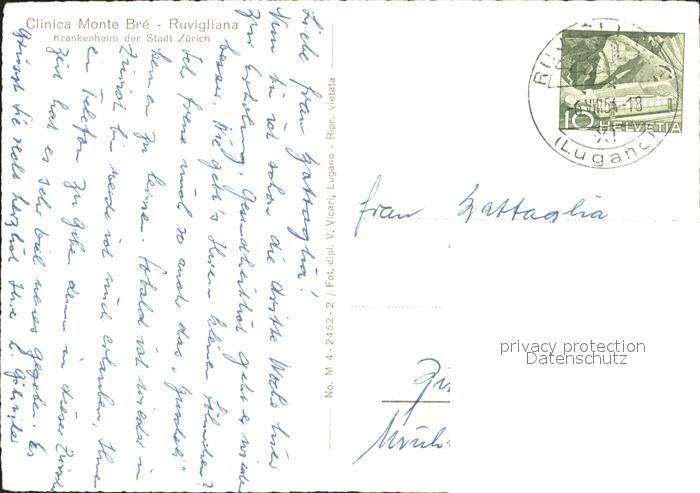 Clinica Monte Bré - Ruvigliana
Krankenheim der Stadt Zürich
Liebe Frau Battaglia!
Nun bin ich schon die dritte Woche hier
zur Erholung. Gesundheitlich geht es wieder
besser. Wie geht's Ihrem kleinen Söhnchen?
Ich freue mich so auch das
kennen zu lernen. Sobald ich wieder in
Zürich bin werde ich mich erlauben, Ihnen
ein Telefon zu geben denn in dieser
Zeit hat es sehr viel neues gegeben. Es
grüsst Sie recht herzlich Ihre
No. M 4 - 2452 - 2 / Fot. dipl. V. Vicari, Lugano - Ripr. vietata
10 HELVETIA
(Lugano)
Frau Battaglia
privacy protection
Datenschutz